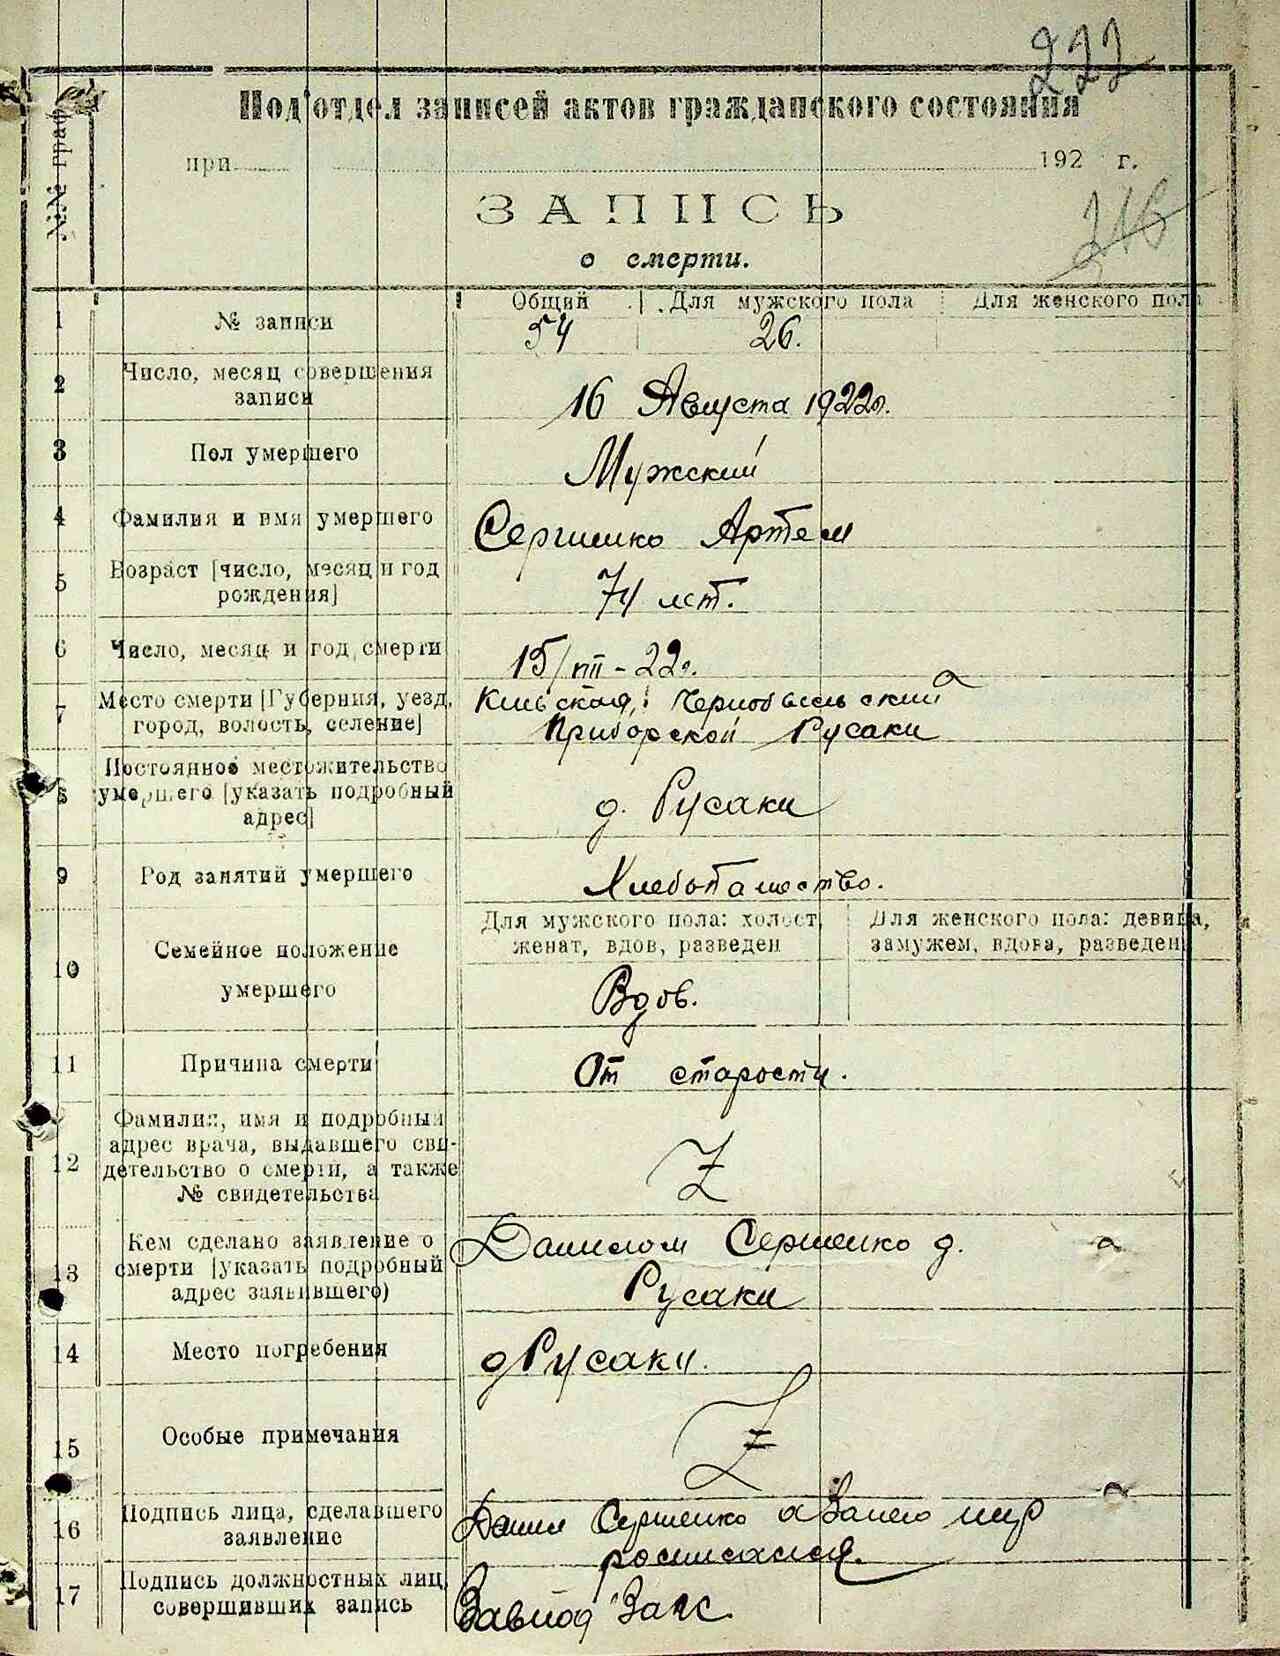 222
Подотдел записей актов гражданского состояния
при 192 г.
ЗАПИСЬ
о смерти.
316
№№ граф
Общий Для мужского пола Для женского пола
1 № записи 54 26.
2 Число, месяц совершения
записи
16 Августа 1922г.
3 Пол умершего Мужский
4 Фамилия и имя умершего Сергиенко Артем
5 Возраст [число, месяц и год
рождения]
74 лет.
6 Число, месяц и год смерти 15/VIII-22г.
7 Место смерти [Губерния, уезд,
город, волость, селение]
Киевская, Чернобыльский
Приборской Русаки
8 Постоянное местожительство
умершего [указать подробный
адрес]
д. Русаки
9 Род занятий умершего Хлебопашество.
10 Семейное положение
умершего
Для мужского пола: холост,
женат, вдов, разведен
Для женского пола: девица,
замужем, вдова, разведен
Вдов.
11 Причина смерти От старости.
12 Фамилия, имя и подробный
адрес врача, выдавшего сви-
детельство о смерти, а также
№ свидетельства
Z
13 Кем сделано заявление о
смерти [указать подробный
адрес заявившего)
Данилом Сергиенко д.
Русаки
14 Место погребения д Русаки.
15 Особые примечания Z
16 Подпись лица, сделавшего
заявление
Данил Сергиенко а За него
росписался.
17 Подпись должностных лиц,
совершивших запись
Завпод Загс